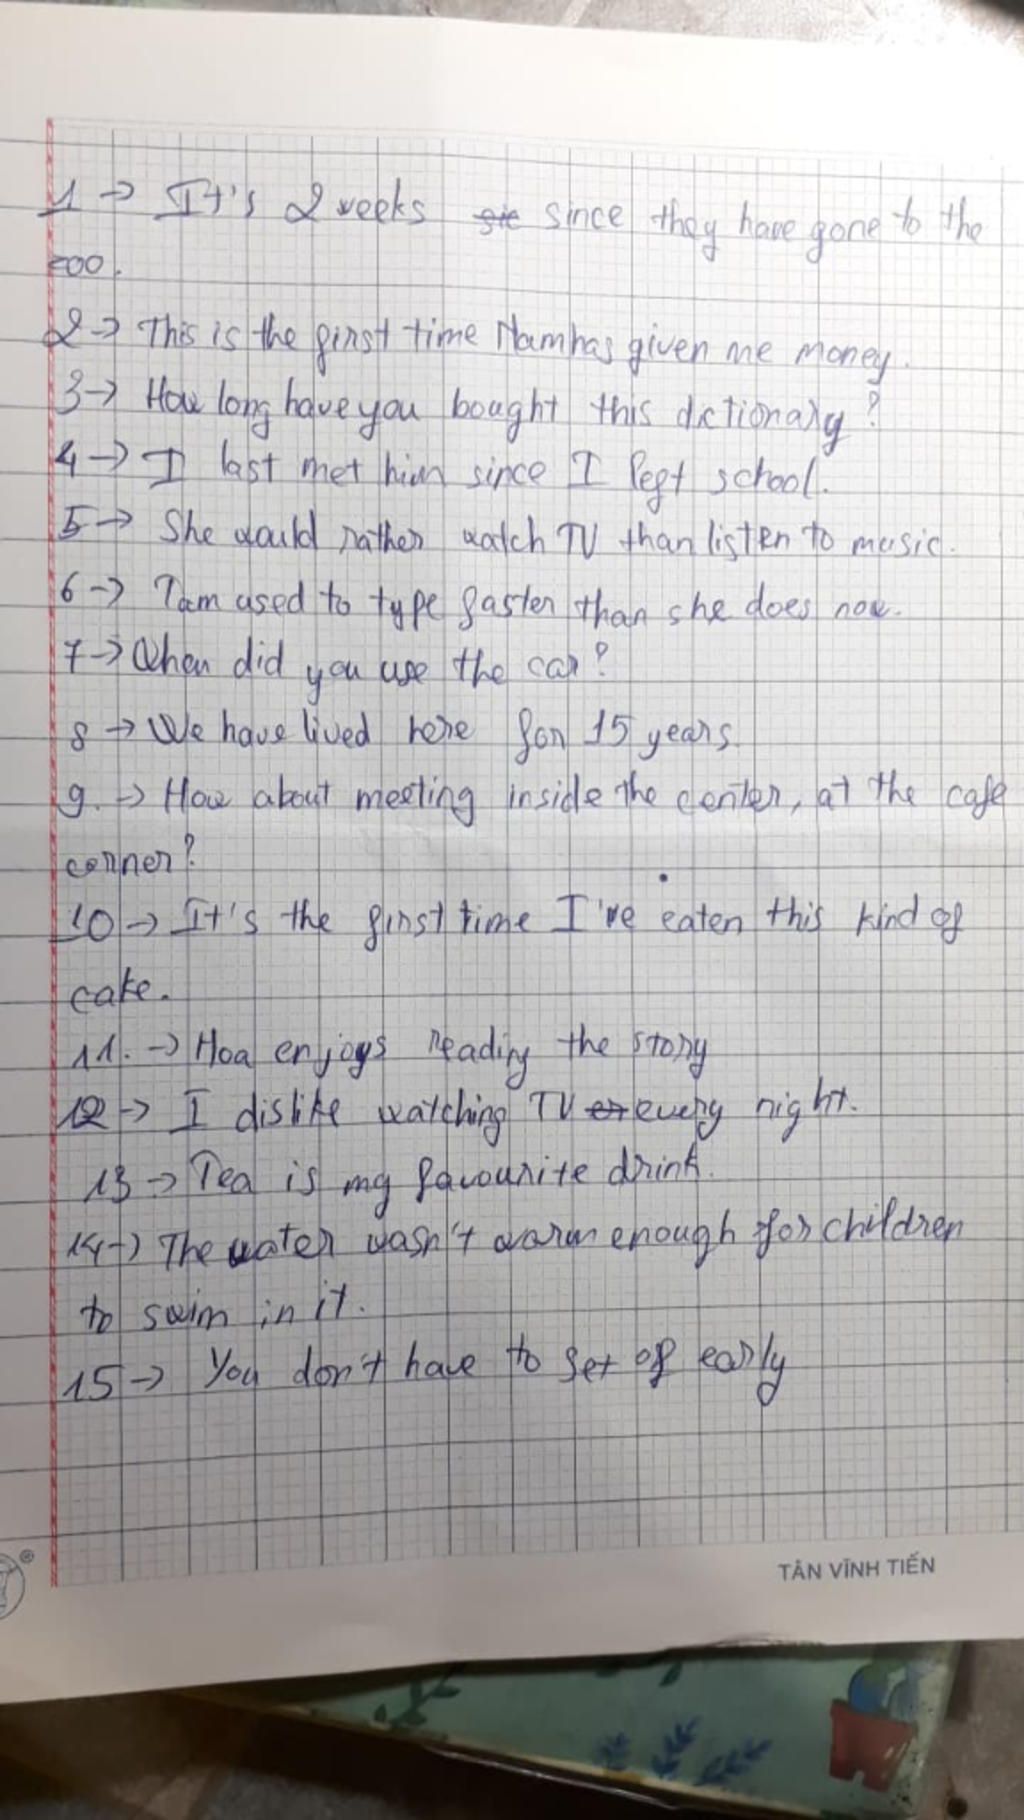 1 → It's 2 weeks since they have gone to the
zoo.
2 → This is the first time Nam has given me money.
3 → How long have you bought this dictionary?
4 → I last met him since I left school.
5 → She would rather watch TV than listen to music.
6 → Tam used to type faster than she does now.
7 → When did you use the car?
8 → We have lived here for 15 years
9. → How about meeting inside the center, at the cafe
corner?
10 → It's the first time I've eaten this kind of
cake.
11. → Hoa enjoys reading the story
12 → I dislike watching TV every night.
13 → Tea is my favourite drink.
14 → The water wasn't warm enough for children
to swim in it.
15 → You don't have to set of early
TÂN VĨNH TIẾN
®